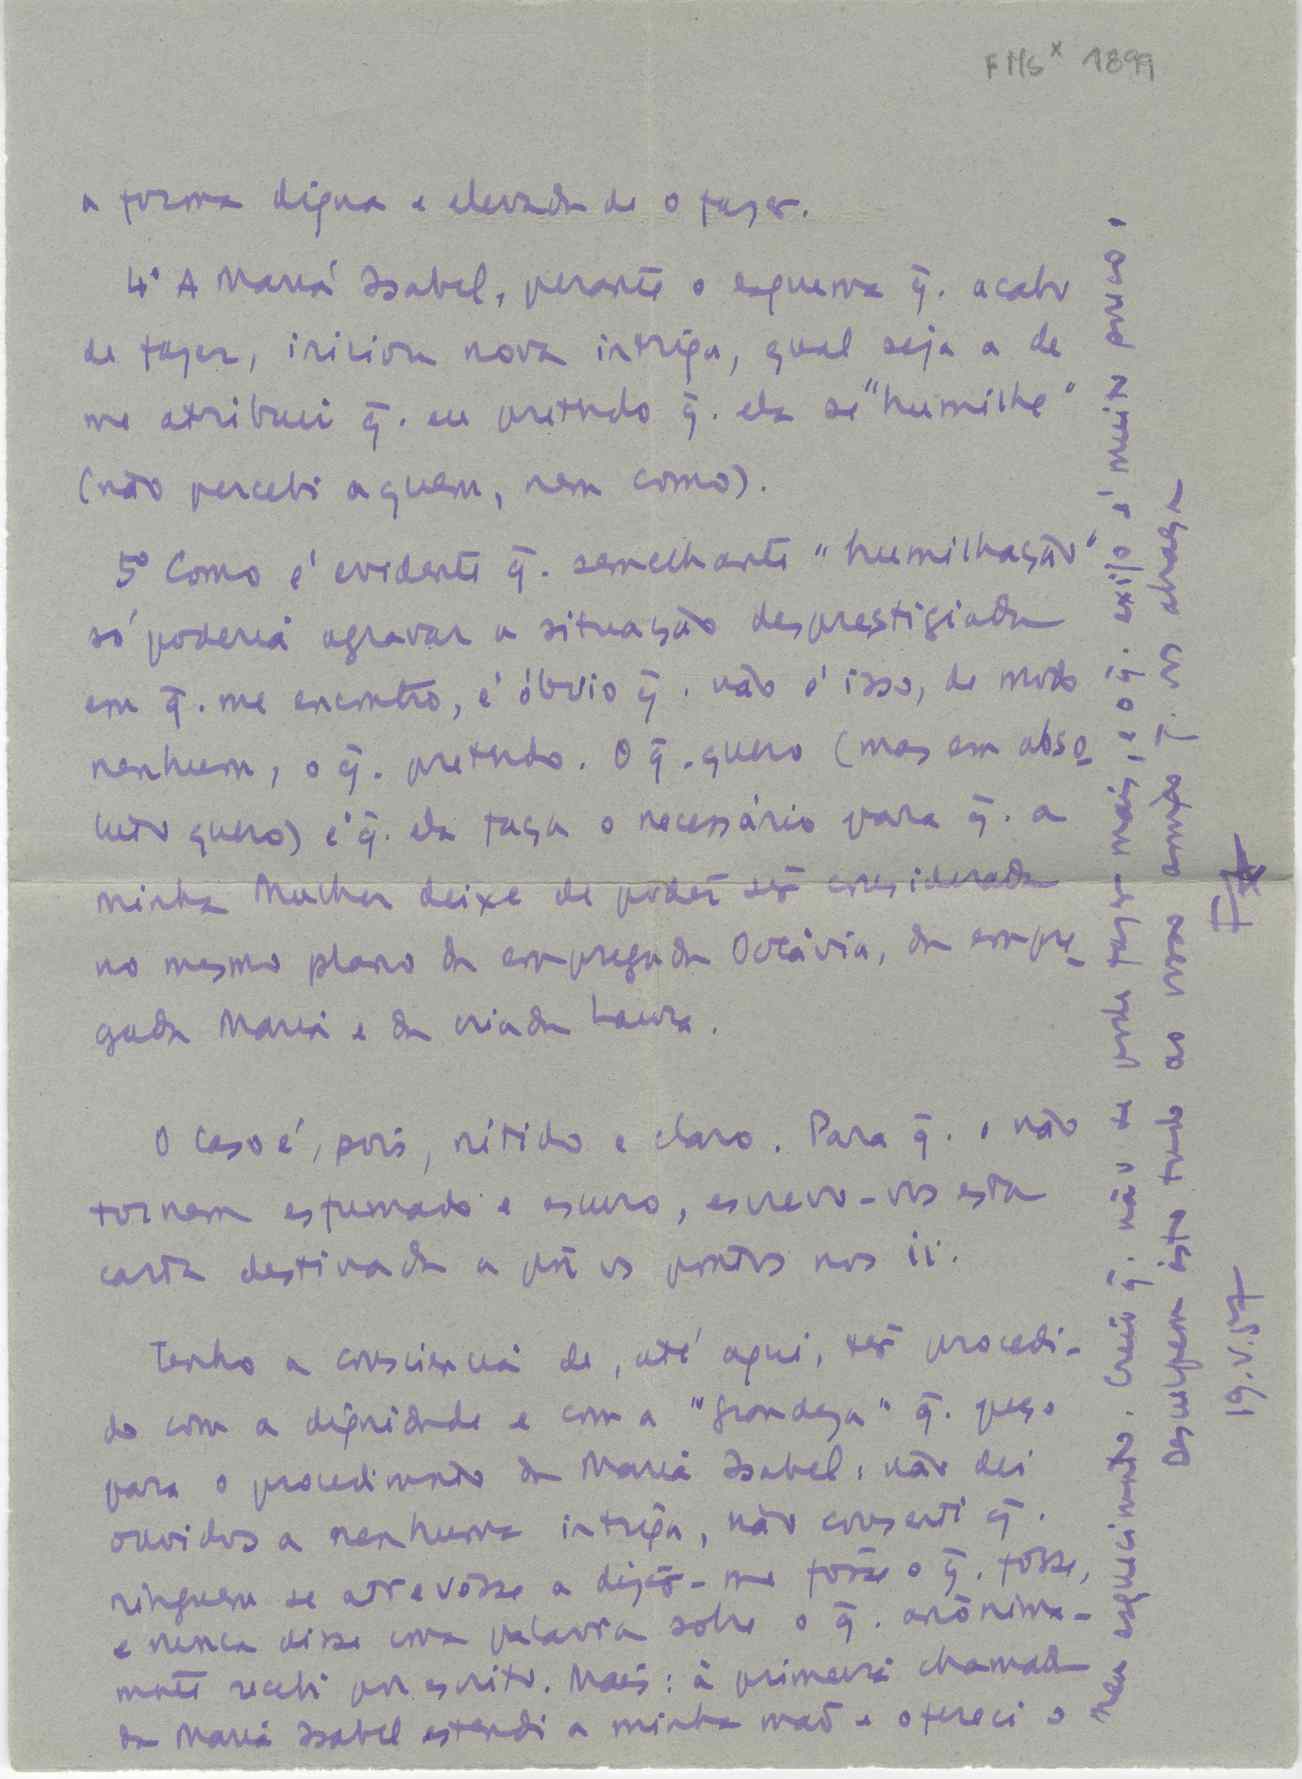 FMS x 1899
a forma digna e elevada de o fazer.
4º A Maria Isabel, perante o esquema q̃. acabo
de fazer, iniciou nova intriga, qual seja a de
me atribuir q̃. eu pretendo q̃. ela se "humilhe"
(não percebi a quem, nem como).
5º Como é evidente q̃. semelhante "humilhação"
só poderia agravar a situação desprestigiada
em q̃. me encontro, é óbvio q̃. não é isso, de modo
nenhum, o q̃. pretendo. O q̃. quero (mas em abso-
luto quero) é q̃. ela faça o necessário para q̃. a
minha Mulher deixe de poder ser considerada
no mesmo plano da empregada Octávia, da empre-
gada Maria e da criada Laura.
O caso é, pois, nítido e claro. Para q̃. o não
tornem esfumado e escuro, escrevo-vos esta
carta destinada a pôr os pontos nos ii.
Tenho a consciencia de, até aqui, ter procedi-
do com a dignidade e com a "grandeza" q̃. peço
para o procedimento da Maria Isabel: não dei
ouvidos a nenhuma intriga, não consenti q̃.
ninguem se atrevêsse a dizêr-me fôsse o q̃. fôsse,
e nunca disse uma palavra sobre o q̃. anònima-
mente recebi por escrito. Mais: à primeira chamada
da Maria Isabel estendi a minha mão e ofereci o
meu esquecimento. Creio q̃. não se pode fazer mais, e o q̃. exijo é muito pouco.
Desculpem isto tudo ao vosso amigo q̃. vos abraça
19.V.57